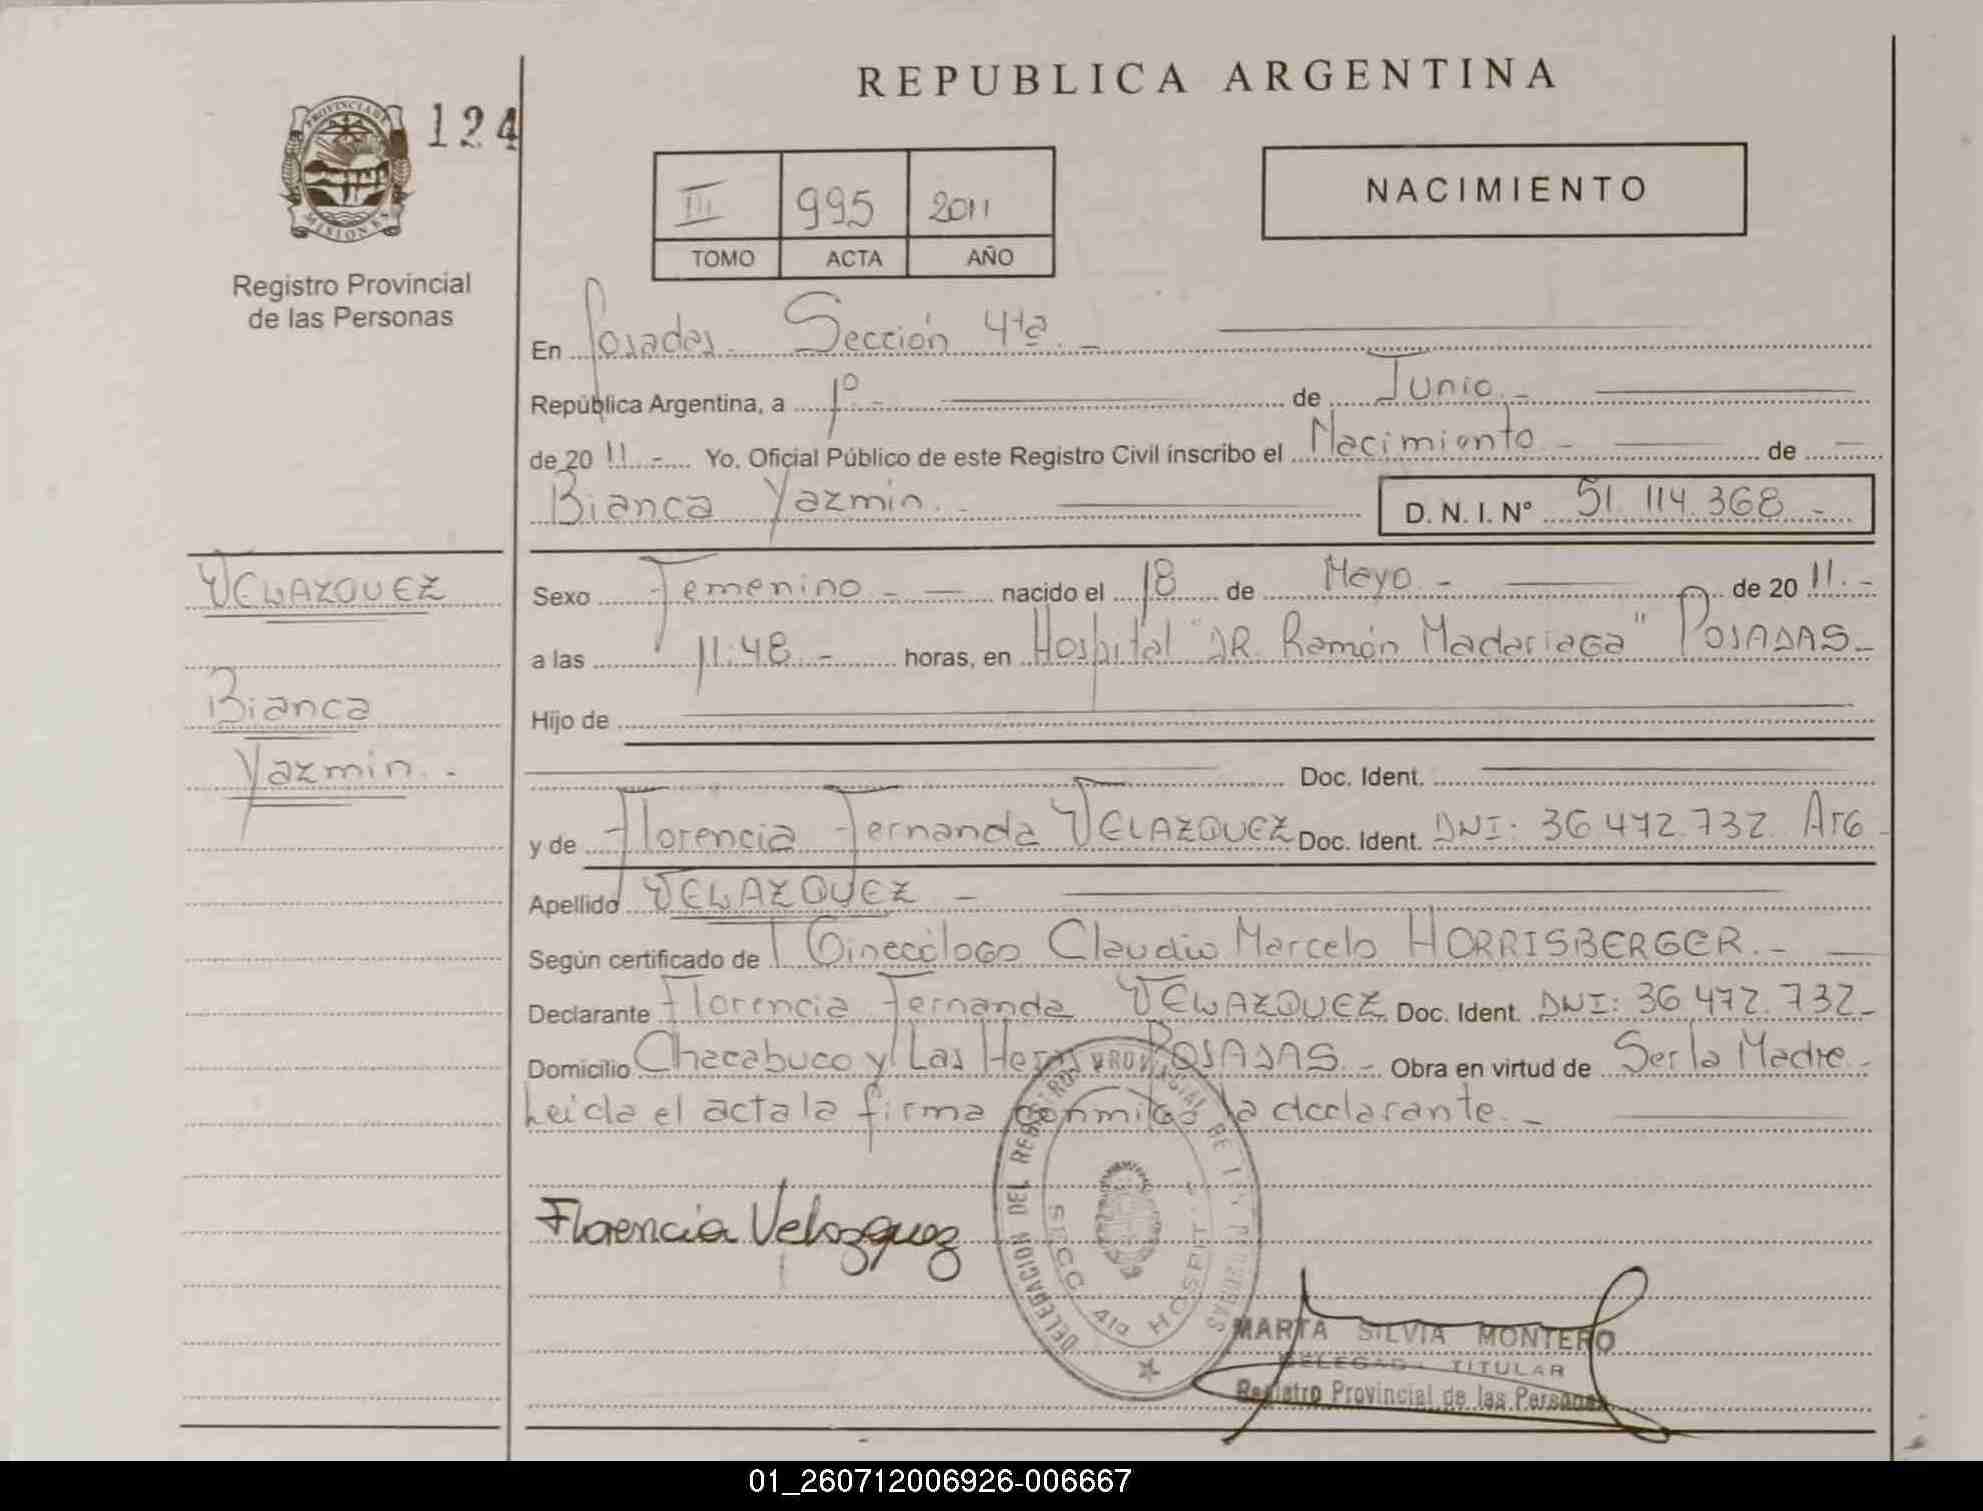 REPUBLICA ARGENTINA
PROVINCIA DE
MISIONES
124
Registro Provincial
de las Personas
III 995 2011
TOMO ACTA AÑO
NACIMIENTO
En Posadas Sección 4ta. -
República Argentina, a 1° - de Junio. -
de 20 11. - Yo, Oficial Público de este Registro Civil inscribo el Nacimiento - de -
Bianca Yazmin. - D. N. I. N° 51.114.368 -
VELAZQUEZ
Bianca
Yazmin. -
Sexo Femenino - nacido el 18 de Mayo - de 20 11. -
a las 11:48 - horas, en Hospital "DR. Ramón Madariaga" POSADAS -
Hijo de
Doc. Ident.
y de Florencia Fernanda VELAZQUEZ Doc. Ident. DNI: 36.472.732 Arg -
Apellido VELAZQUEZ -
Según certificado de Ginecólogo Claudio Marcelo HORRISBERGER. -
Declarante Florencia Fernanda VELAZQUEZ Doc. Ident. DNI: 36.472.732 -
Domicilio Chacabuco y Las Heras POSADAS - Obra en virtud de Ser la Madre -
Leida el acta la firma conmigo la declarante. -
Florencia Velazquez
DELEGACION DEL REGISTRO PROVINCIAL DE LAS PERSONAS
SECC 4ta HOSPIT.
MARTA SILVIA MONTERO
DELEGADA TITULAR
Registro Provincial de las Personas
01_260712006926-006667